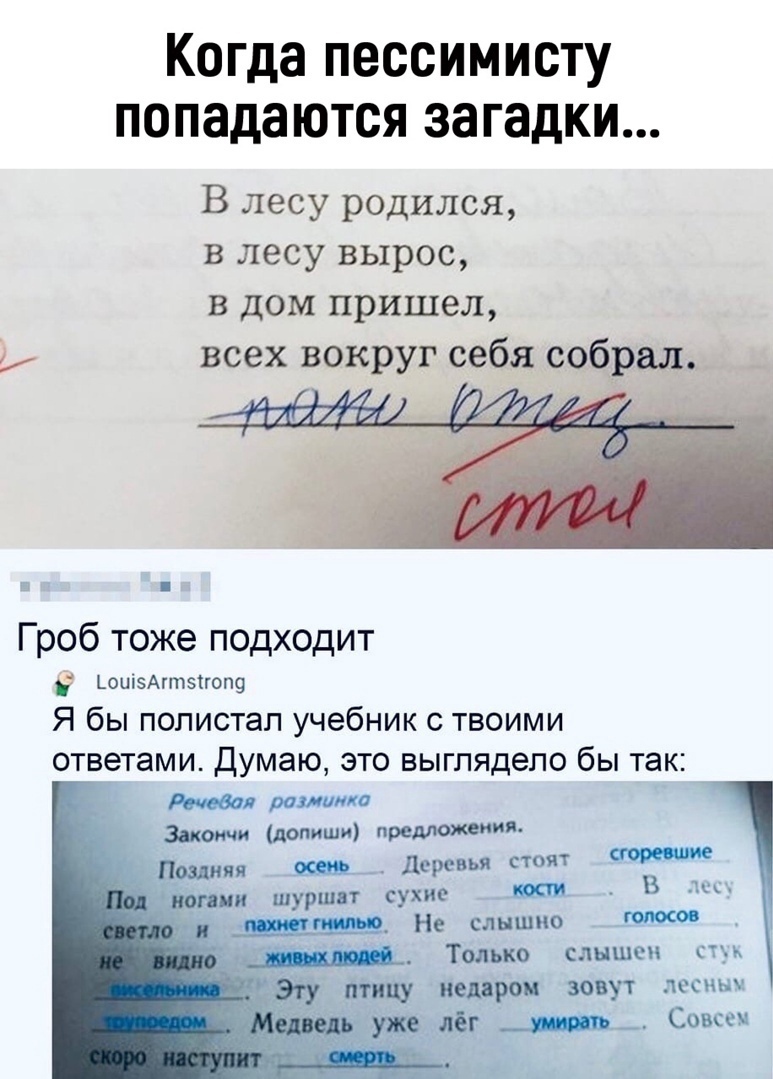 Когда пессимисту
попадаются загадки...
В лесу родился,
в лесу вырос,
в дом пришел,
всех вокруг себя собрал.
папа отец
стол
Гроб тоже подходит
LouisArmstrong
Я бы полистал учебник с твоими
ответами. Думаю, это выглядело бы так:
Речевая разминка
Закончи (допиши) предложения.
Поздняя осень . Деревья стоят сгоревшие
Под ногами шуршат сухие кости . В лесу
светло и пахнет гнилью . Не слышно голосов ,
не видно живых людей . Только слышен стук
висельника . Эту птицу недаром зовут лесным
трупоедом . Медведь уже лёг умирать . Совсем
скоро наступит смерть .